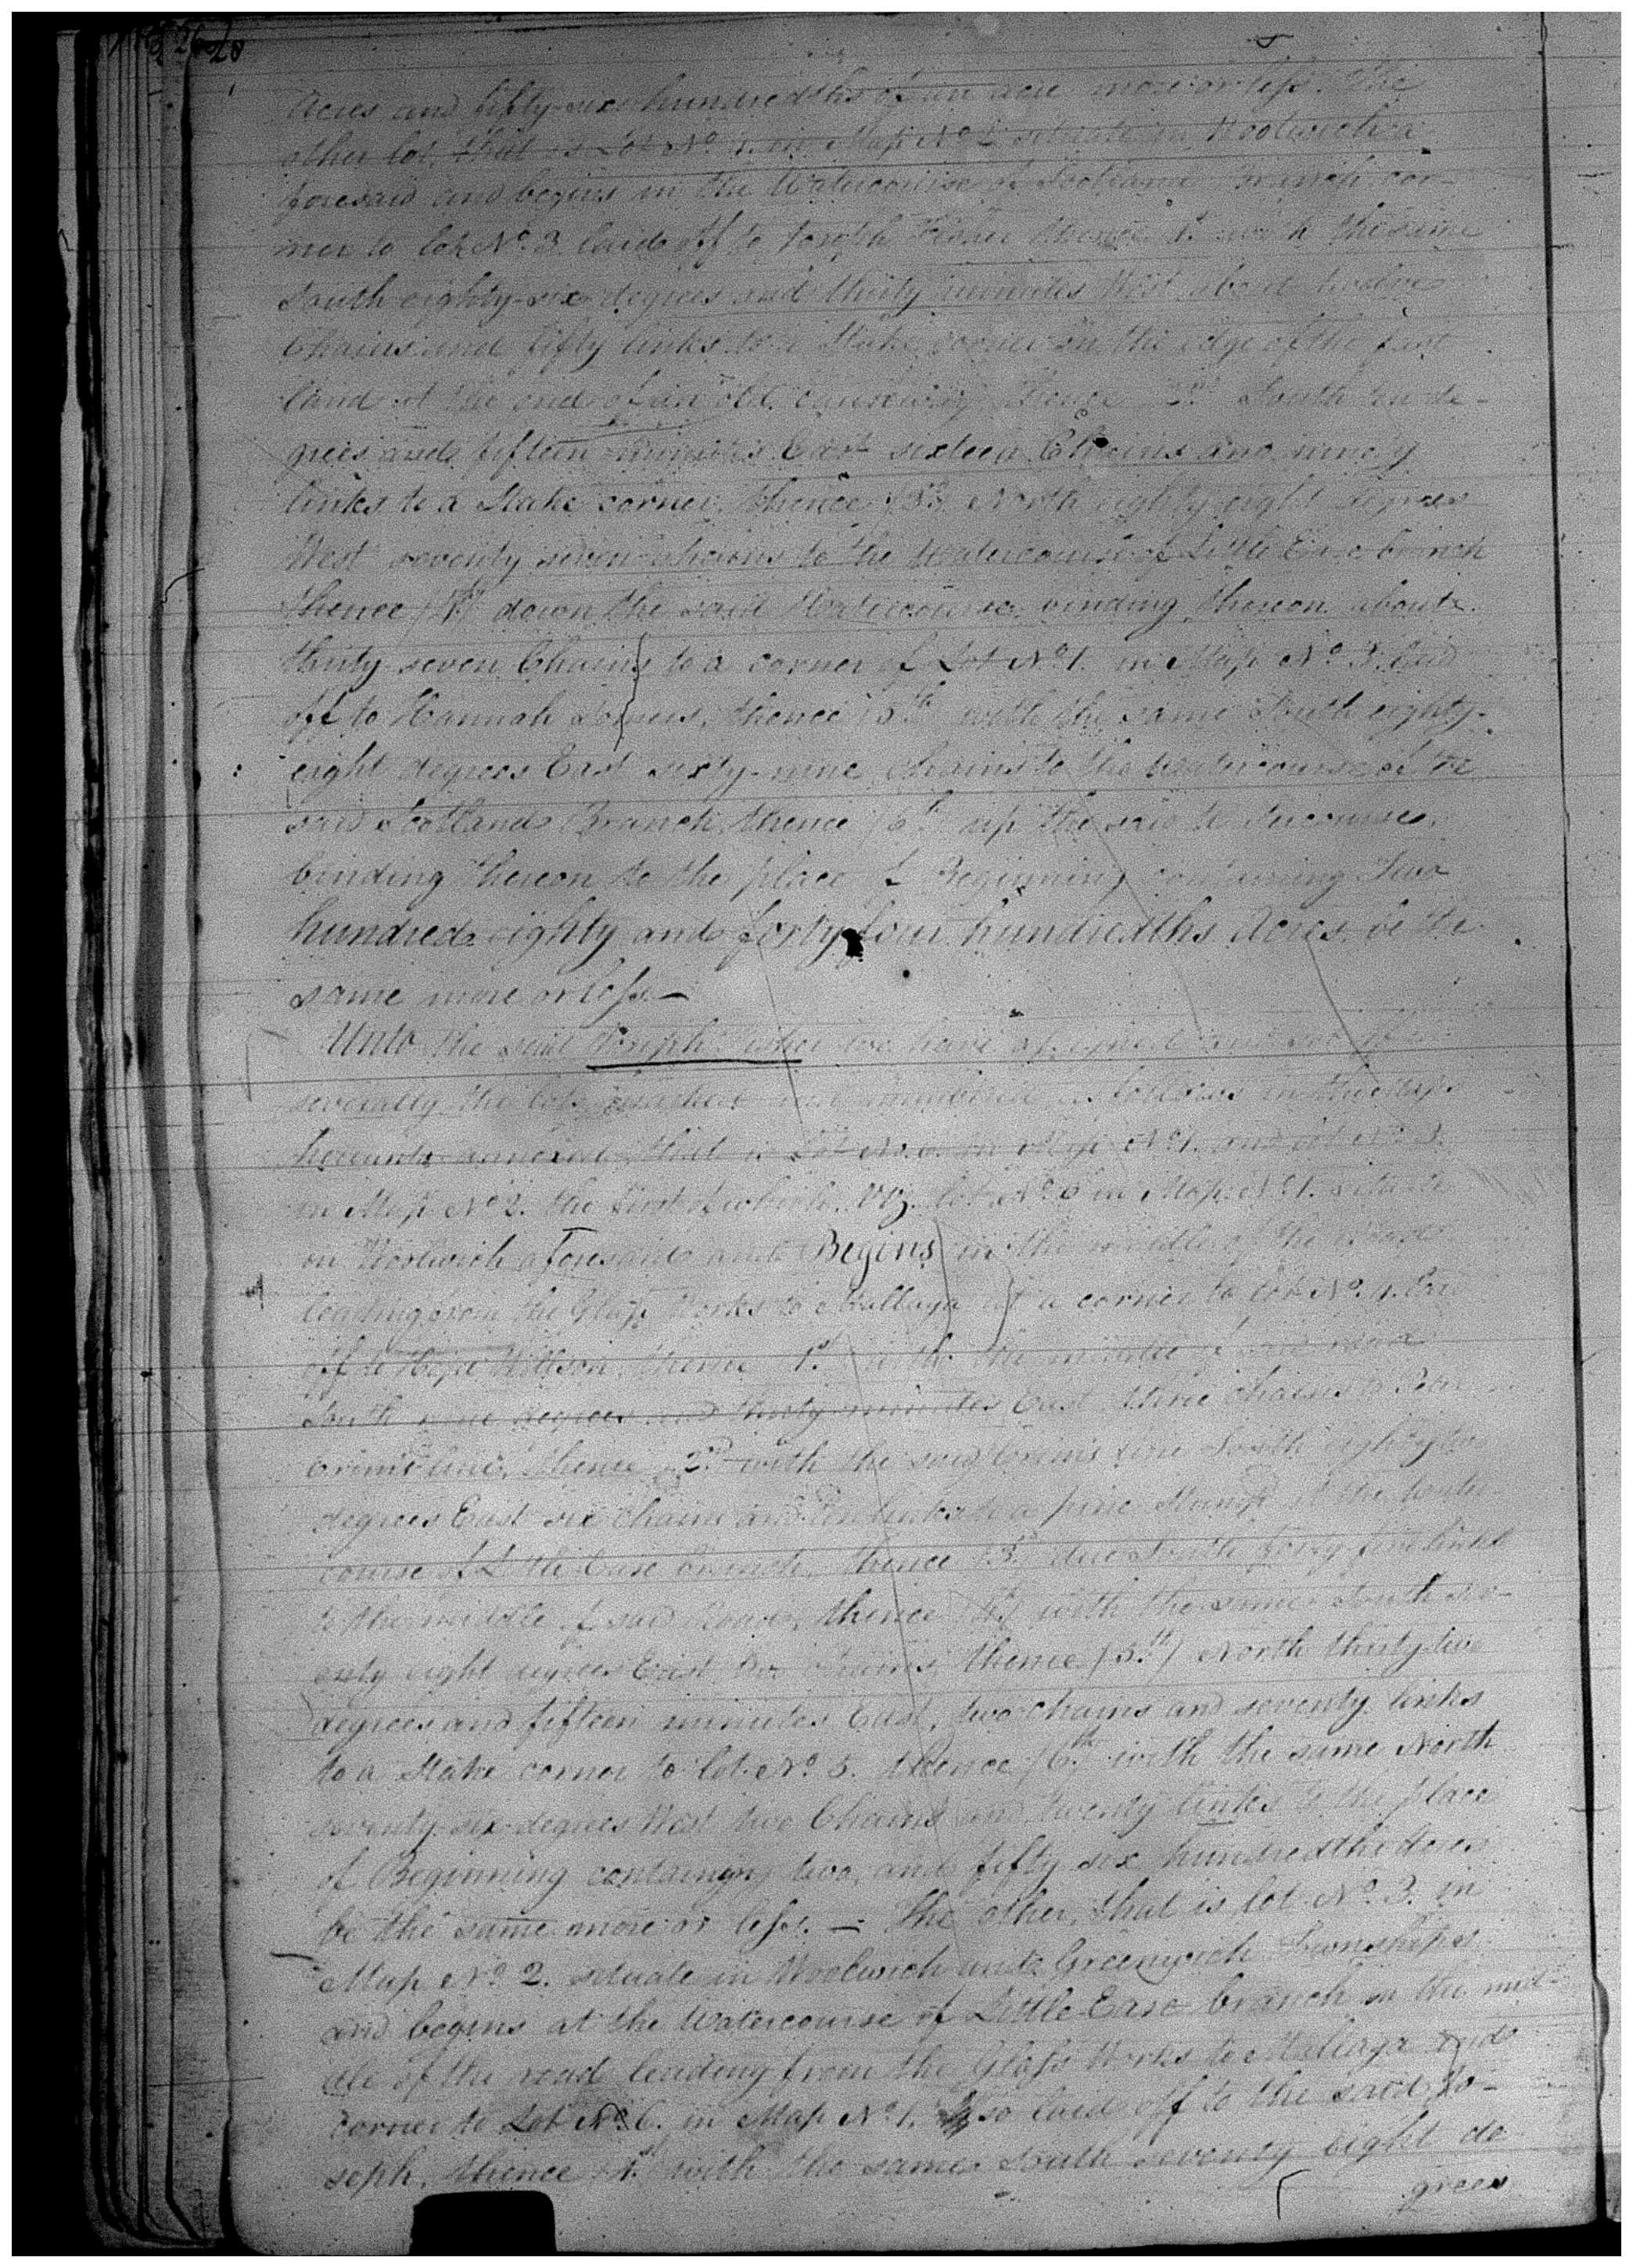 acres and fifty-six hundredths of an acre more or less. The
other lot, that is Lot No. 1. in Map No 2 situate in Woolwich a-
foresaid and begins in the Watercourse of Scotland Branch cor-
ner to lot No. 3 laid off to Joseph thence 1st with the same
South eighty-six degrees and thirty minutes West about twelve
Chains and fifty links to a Stake corner on the edge of the fast
land at the end of an old causeway thence 2nd South ten de-
grees and fifteen minutes East sixteen Chains and ninety
links to a Stake corner, thence (3d) North eighty eight degrees
West seventy seven chains to the Watercourse of Little Ease branch
thence (4th) down the said Watercourse binding thereon about
thirty seven Chains to a corner of Lot No 1. in Map No 3. laid
off to Hannah thence 5th with the same South eighty-
eight degrees East sixty-nine chains to the watercourse of the
said Scotland Branch, thence (6th up the said Watercourse,
binding thereon to the place of Beginning containing Two
hundred eighty and forty four hundredths Acres. be the
same more or less. —
Unto the said Joseph we have assigned and set off
severally the lots and numbered as follows in the maps
hereunto annexed that is Lot No. 6. in Map No 1. and lot No 3.
in Map No 2. the first of which. viz. lot No 6 in Map No 1. situate
in Woolwich aforesaid and Begins in the middle of the Road
leading from the Glass Works to Mallaga at a corner to lot No. 4. laid
off to Hope Willson, thence 1st with the middle of said road
South nine degrees and thirty minutes East three chains to
line, thence 2nd with the said line South eighty two
degrees East six chains and ten links to a pine Stump at the water
course of Little Ease branch, thence 3d due South forty five links
to the middle of said Road, thence (4th) with the same South sev-
enty eight degrees East Chains, thence (5th) North thirty two
degrees and fifteen minutes East, two chains and seventy links
to a Stake corner to lot No. 5. thence (6th with the same North
seventy-six degrees West two Chains and twenty links to the place
of Beginning containing two, and fifty six hundredths Acres
be the same more or less. — The other, that is lot No. 3. in
Map No 2. situate in Woolwich and Greenwich Townships
and begins at the Watercourse of Little-Ease branch in the mid-
dle of the road leading from the Glass Works to Mallaga and
corner to Lot No 6. in Map No 1. also laid off to the said Jo-
seph, thence 1st with the same South seventy eight de
grees